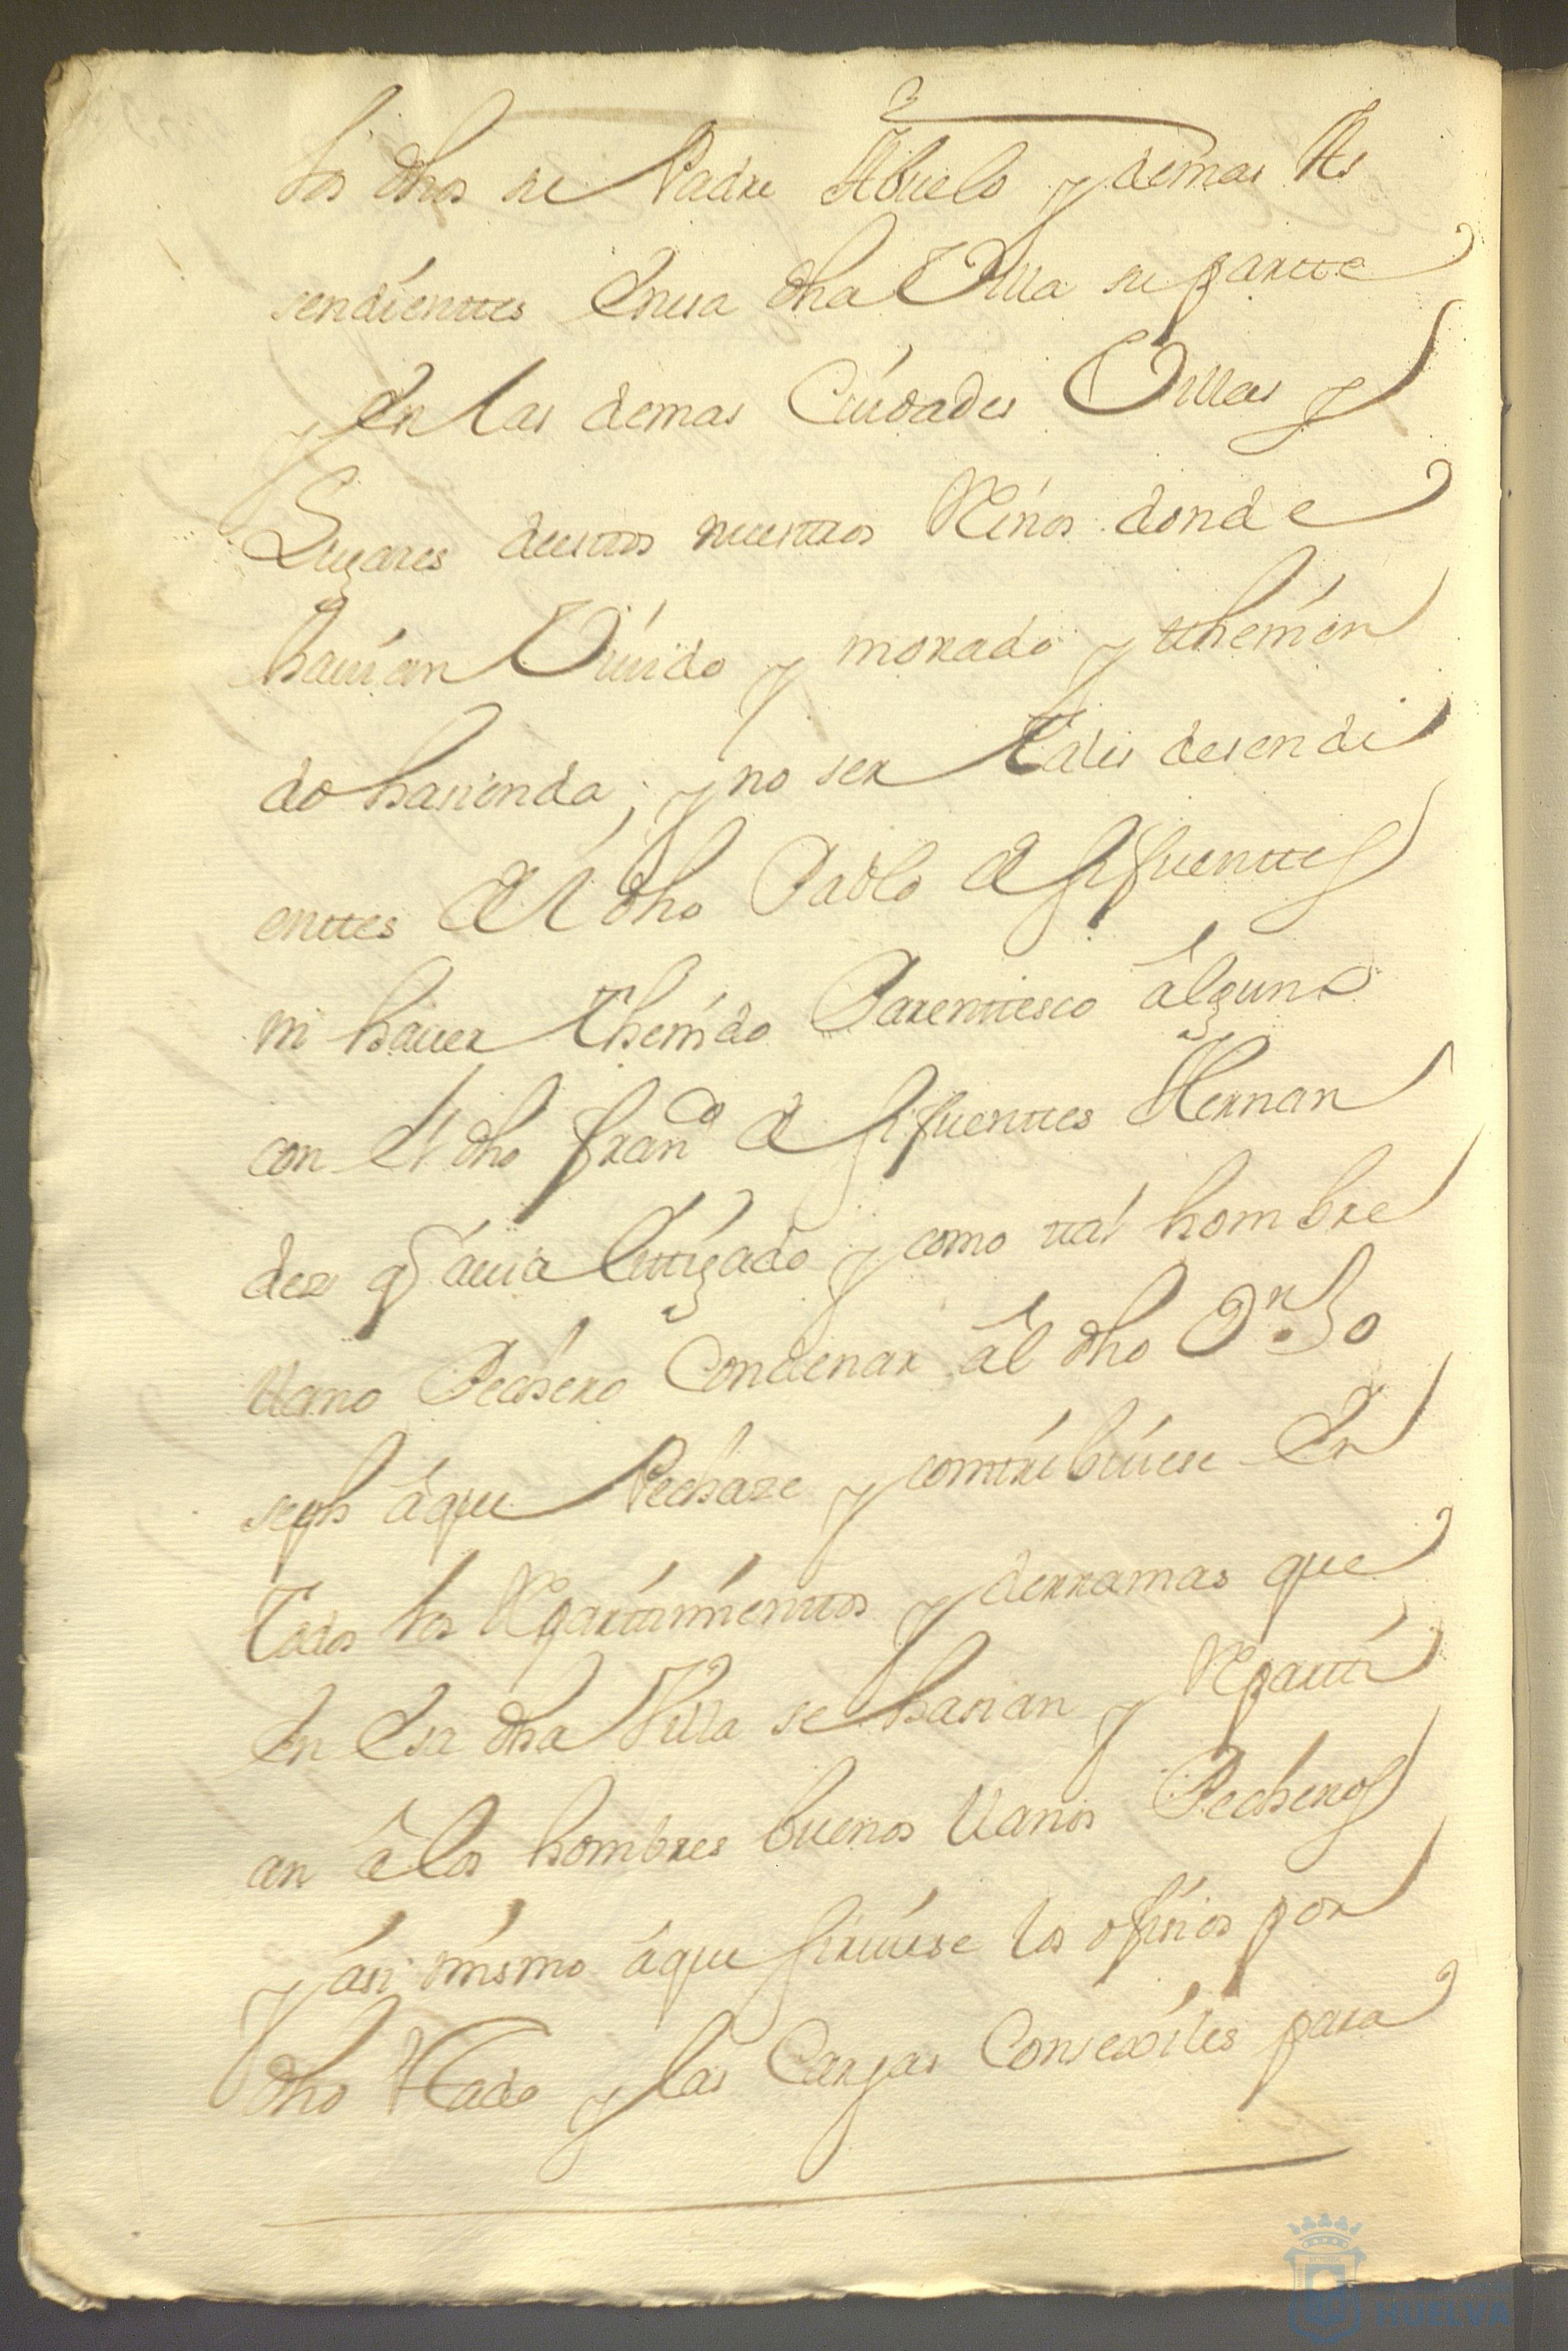 los dhos su Padre Abuelo y demas As
sendienttes Enesa dha Villa su partte
y En las demas Ciudades Villas y
Lugares destos nuestros Reinos donde
hauian Viuido y morado y tthenien
do hasienda; y no ser Tales desendi
enttes del dho Pablo de sifuenttes
ni hauer Thenido Parenttesco álguno
con El dho franco de sifuenttes Hernan
dez q áuia Littigado y como ttal hombre
llano Pechero Condenar ál dho Dn. Jo
seph áque Pechaze y conttribuiese En
Todos los Reparttimienttos y derramas que
En Esa dha Villa se hasian y Repartti
an á los hombres buenos llanos Pecheros
y ási mismo áque siruiese los ofisios por
dho Estado y las Cargas Consexiles para
HUELVA